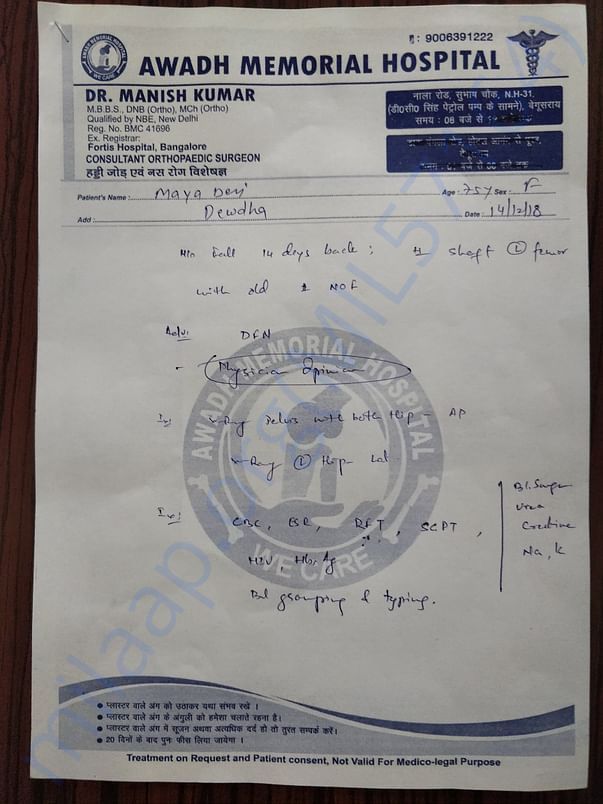 : 9006391222
AWADH MEMORIAL HOSPITAL
WE CARE
DR. MANISH KUMAR
M.B.B.S., DNB (Ortho), MCh (Ortho)
Qualified by NBE, New Delhi
Reg. No. BMC 41696
Ex. Registrar:
Fortis Hospital, Bangalore
CONSULTANT ORTHOPAEDIC SURGEON
हड्डी जोड़ एवं नस रोग विशेषज्ञ
नाला रोड, सुभाष चौक, N.H-31,
(डी०सी० सिंह पेट्रोल पम्प के सामने), बेगूसराय
समय : 08 बजे से
Patient's Name : Maya Devi Age : 75Y Sex : F
Add : Dewdha Date : 14/12/18
H/o fall 14 days back ; # shaft (L) femur
with old # NOF
Adv: DFN
Physician Opinion
X-Ray Pelvis with both Hip - AP
X-Ray (L) Hip Lat
CBC, RFT, SGPT,
HIV, HbsAg
Bl grouping & typing.
Bl. Sugar
Urea
Creatine
Na, K
AWADH MEMORIAL HOSPITAL
WE CARE
प्लास्टर वाले अंग को उठाकर यथा संभव रखे ।
प्लास्टर वाले अंग के अंगुली को हमेशा चलाते रहना है।
प्लास्टर वाले अंग में सूजन अथवा अत्यधिक दर्द हो तो तुरत सम्पर्क करें।
20 दिनों के बाद पुनः फीस लिया जायेगा ।
Treatment on Request and Patient consent, Not Valid For Medico-legal Purpose